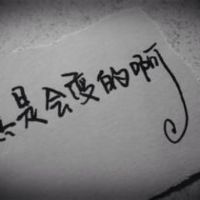 是会变的啊